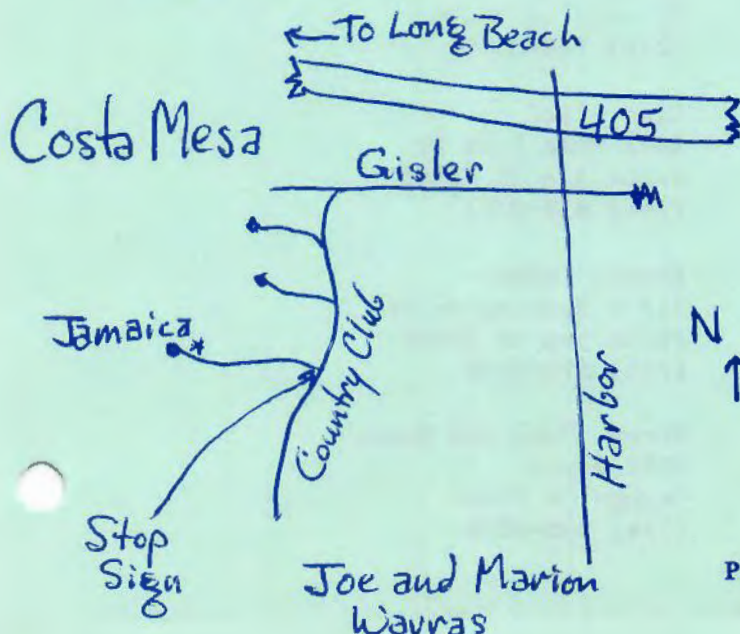 ← To Long Beach
405
Costa Mesa
Gisler
Jamaica
*
Country Club
Harbor
N
↑
Stop
Sign
Joe and Marion
Wavras
P